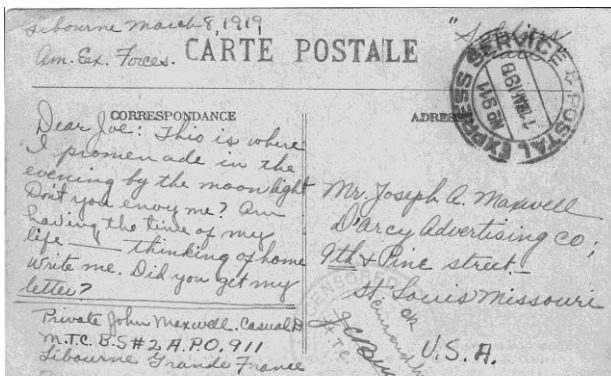 Libourne March 8, 1919
Am. Ex. Forces.
"Soldiers
CARTE POSTALE
POSTAL EXPRESS SERVICE
No 911
11 MAR 19
CORRESPONDANCE
ADRESSE
Dear Joe: This is where
I promenade in the
evening by the moonlight
Don't you envy me? Am
having the time of my
life — thinking of home
Write me. Did you get my
letter?
Private John Maxwell. Casual D
M.T.C. B.S #2 A.P.O. 911
Libourne Grande France
Mr. Joseph A. Maxwell
D'Arcy Advertising Co;
9th & Pine street —
St Louis Missouri
U.S.A.
CENSORED
OK